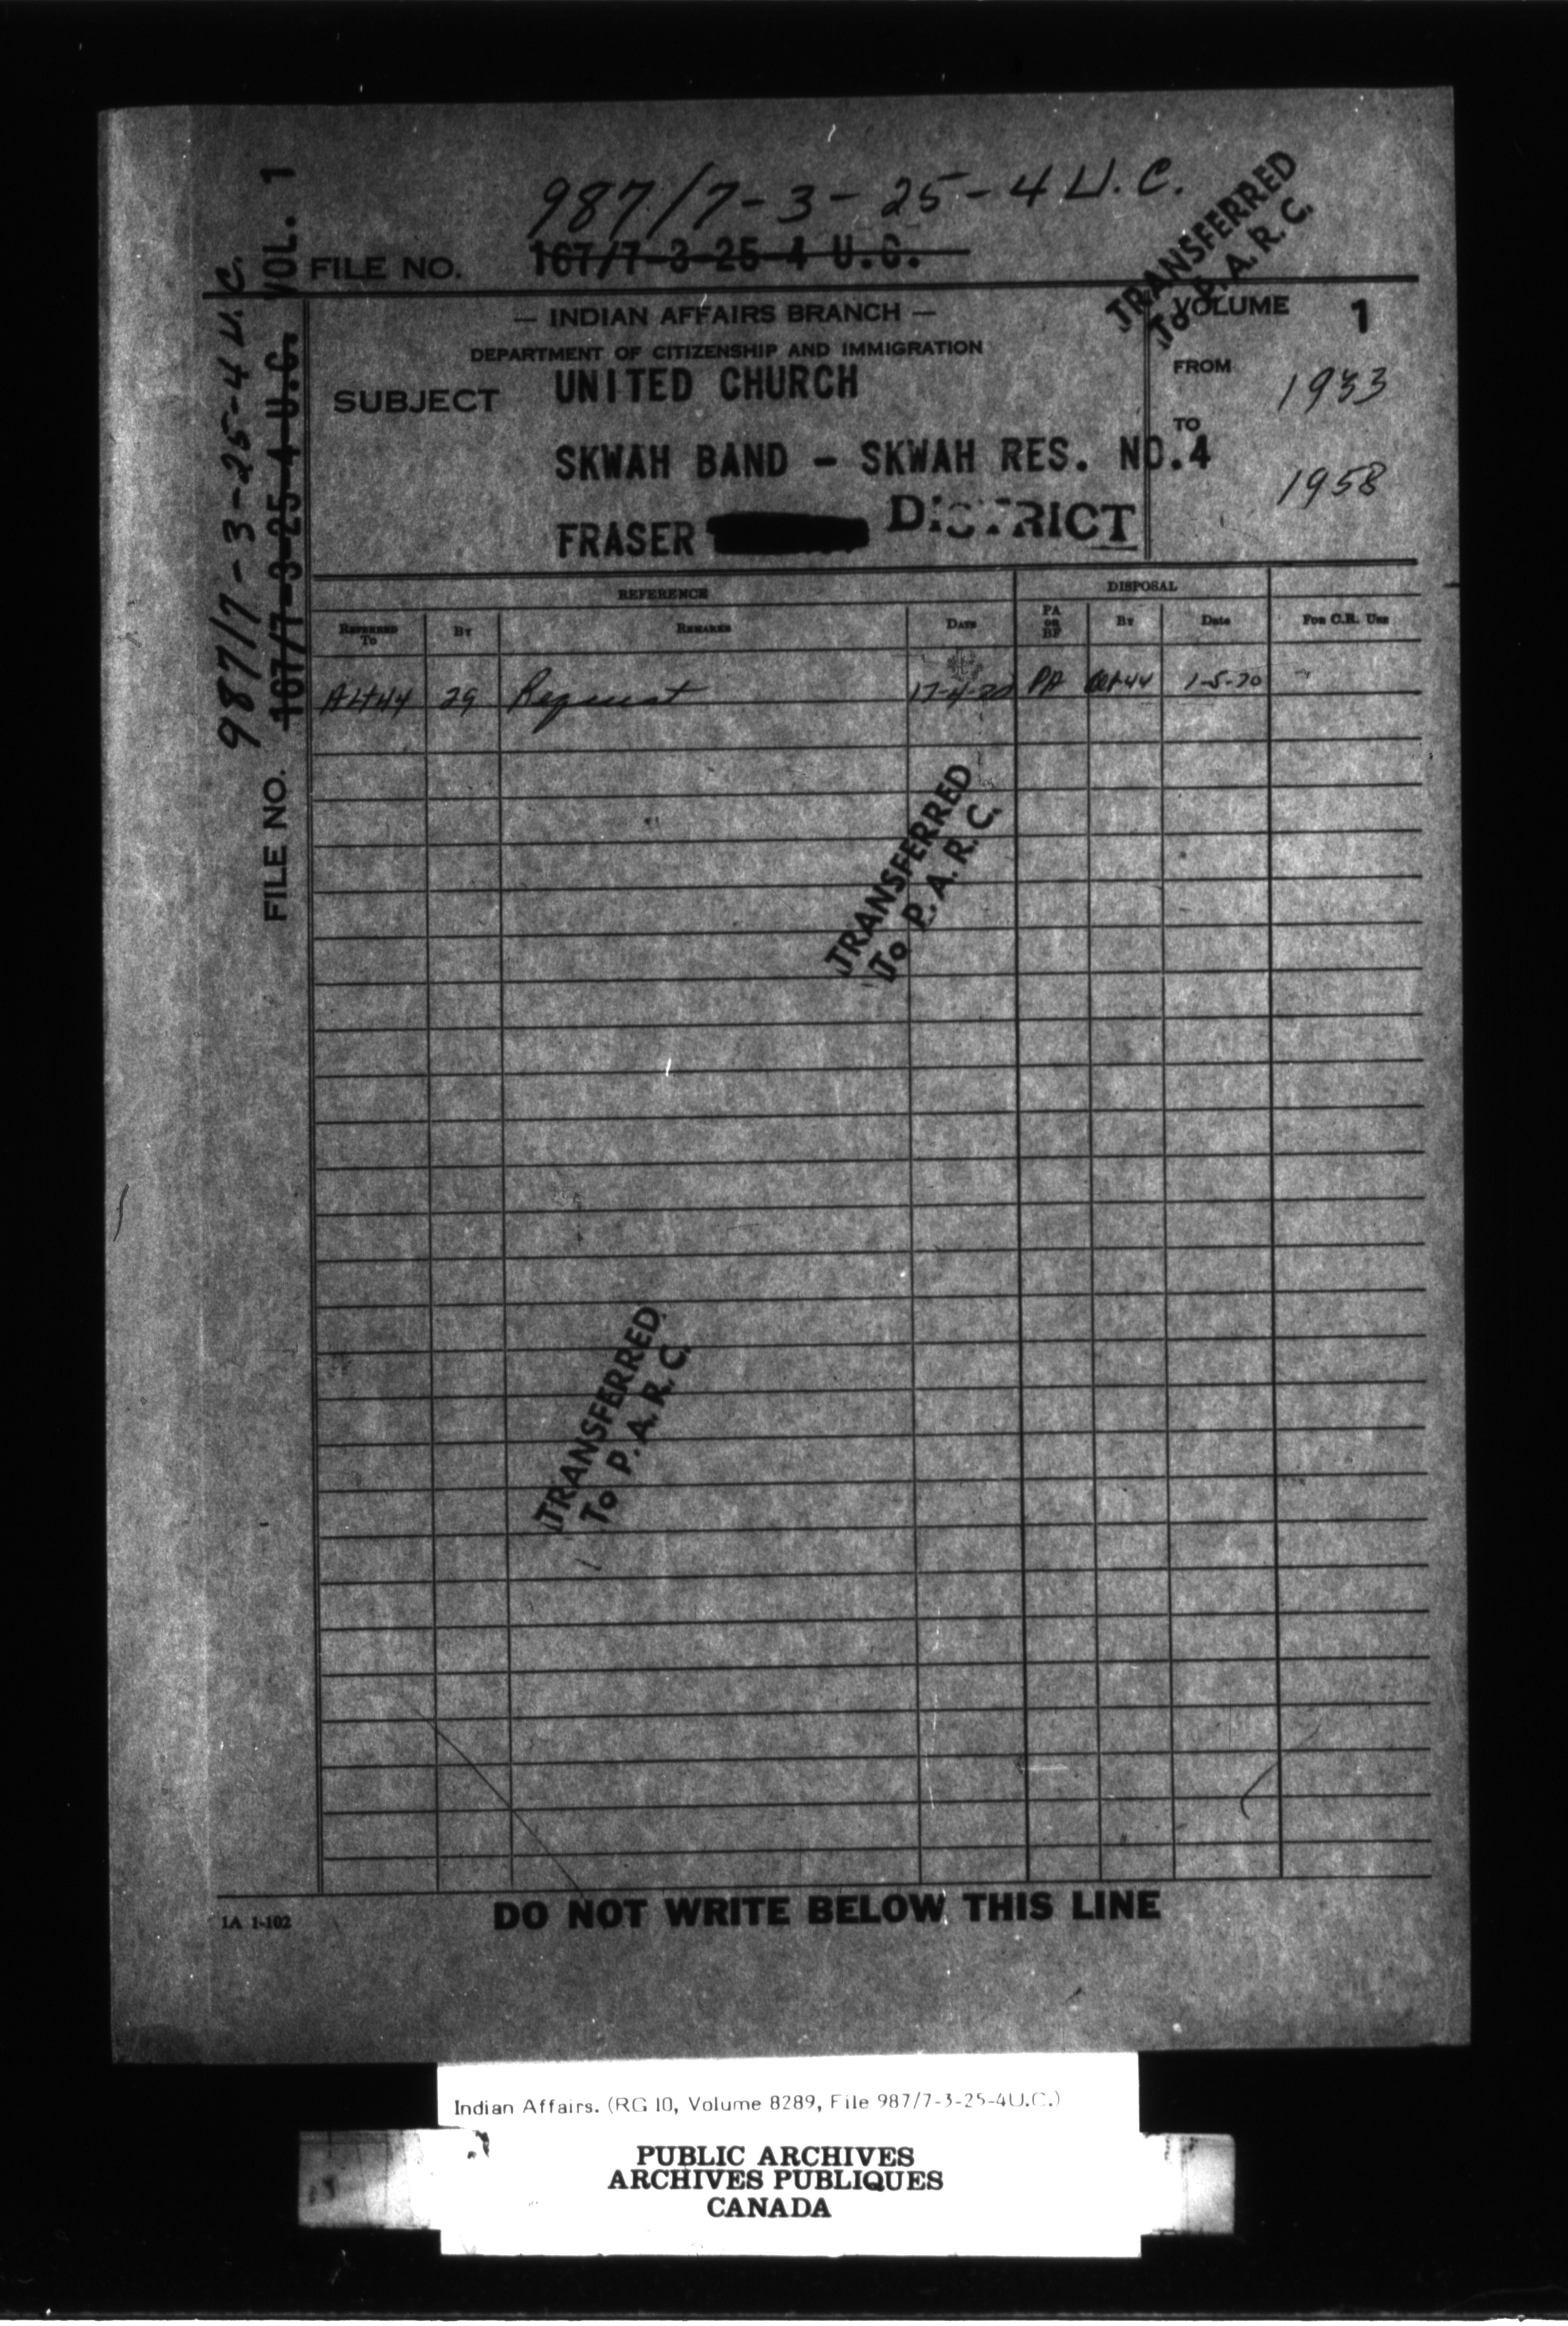 987/7-3-25-4 U.C.
FILE NO. 167/7-3-25-4 U.C.
TRANSFERRED
To P.A.R.C.
— INDIAN AFFAIRS BRANCH —
DEPARTMENT OF CITIZENSHIP AND IMMIGRATION
SUBJECT UNITED CHURCH
SKWAH BAND - SKWAH RES. NO.4
FRASER DISTRICT
VOLUME 1
FROM
1933
TO
1958
987/7-3-25-4 U.C.
FILE NO. 167/7-3-25-4 U.C. VOL. 1
REFERENCE DISPOSAL
REFERRED TO BY REMARKS DATE PA OR BF BY Date FOR C.R. USE
29 Request PA 1-5-70
TRANSFERRED
To P.A.R.C.
TRANSFERRED
To P.A.R.C.
IA 1-102
DO NOT WRITE BELOW THIS LINE
Indian Affairs. (RG 10, Volume 8289, File 987/7-3-25-4U.C.)
PUBLIC ARCHIVES
ARCHIVES PUBLIQUES
CANADA